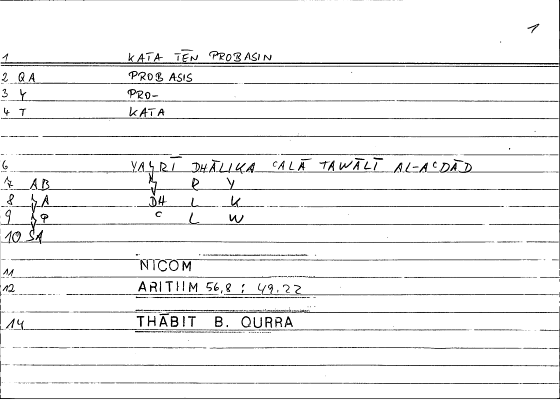 1
1 KATA TĒN PROBASIN
2 QA PROBASIS
3 Y PRO-
4 T KATA
6 YAϟRĪ DHĀLIKA ᶜALĀ TAWĀLĪ AL-AᶜDĀD
7 AB ϟ R Y
8 ϟA DH L K
9 ϟP ᶜ L W
10 SA
11 NICOM
12 ARITIIM 56,8 : 49.22
14 THĀBIT B. QURRA